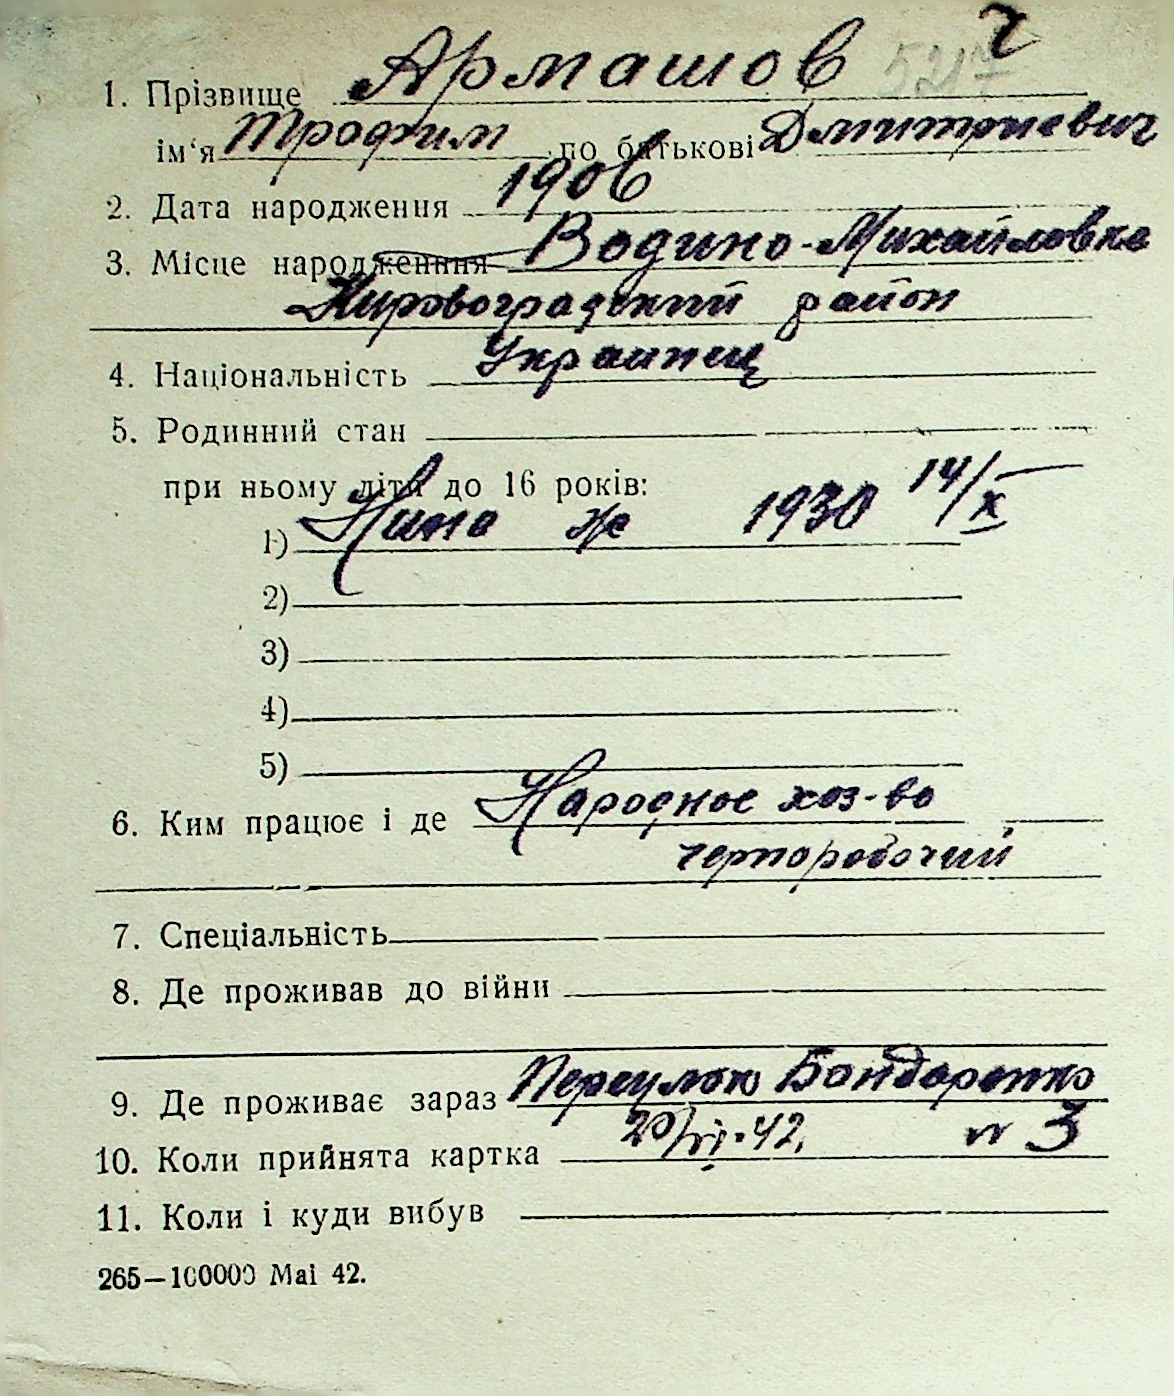 ч
1. Прізвище Армашов 5217
ім‘я Трофим по батькові Дмитриевич
2. Дата народження 1906
3. Місце народження Водино-Михайловка
Кировоградский район
4. Національність Украинец
5. Родинний стан
при ньому діти до 16 років:
1) Нина ж 1930 14/X
2)
3)
4)
5)
6. Ким працює і де Народное хоз-во
чернорабочий
7. Спеціальність
8. Де проживав до війни
9. Де проживає зараз Переулок Бондаренко
10. Коли прийнята картка 20/VI.42. н 3
11. Коли і куди вибув
265—100000 Mai 42.